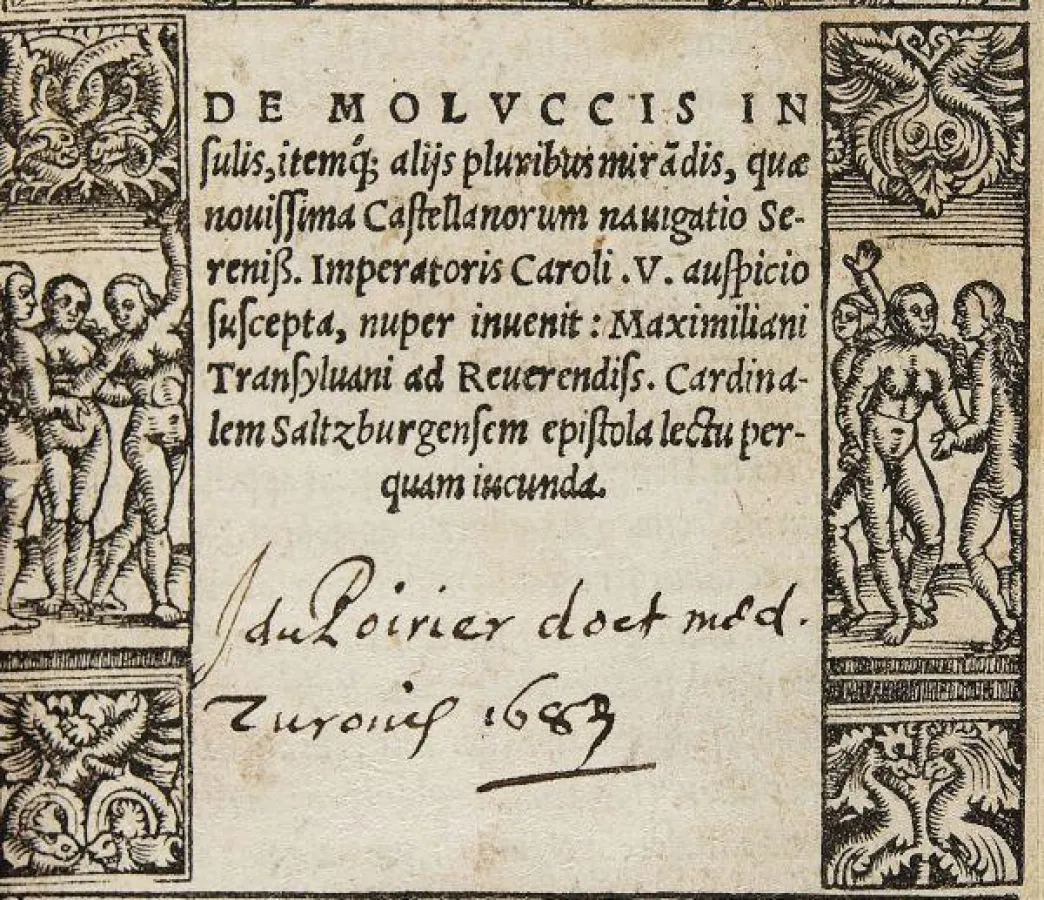 DE MOLVCCIS IN
ſulis, itemq́; alijs pluribus mirãdis, quæ
nouiſſima Caſtellanorum nauigatio Se-
reniß. Imperatoris Caroli .V. auſpicio
ſuſcepta, nuper inuenit: Maximiliani
Tranſyluani ad Reuerendiſs. Cardina-
lem Saltzburgenſem epiſtola lectu per-
quam iucunda.
J du Poirier doct med.
Turonis 1683